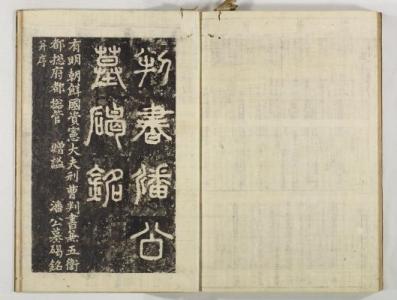 判書潘公
墓碣銘
有明朝鮮國資憲大夫刑曹判書兼五衛
都摠府都摠管 贈謚 潘公墓碣銘
并序